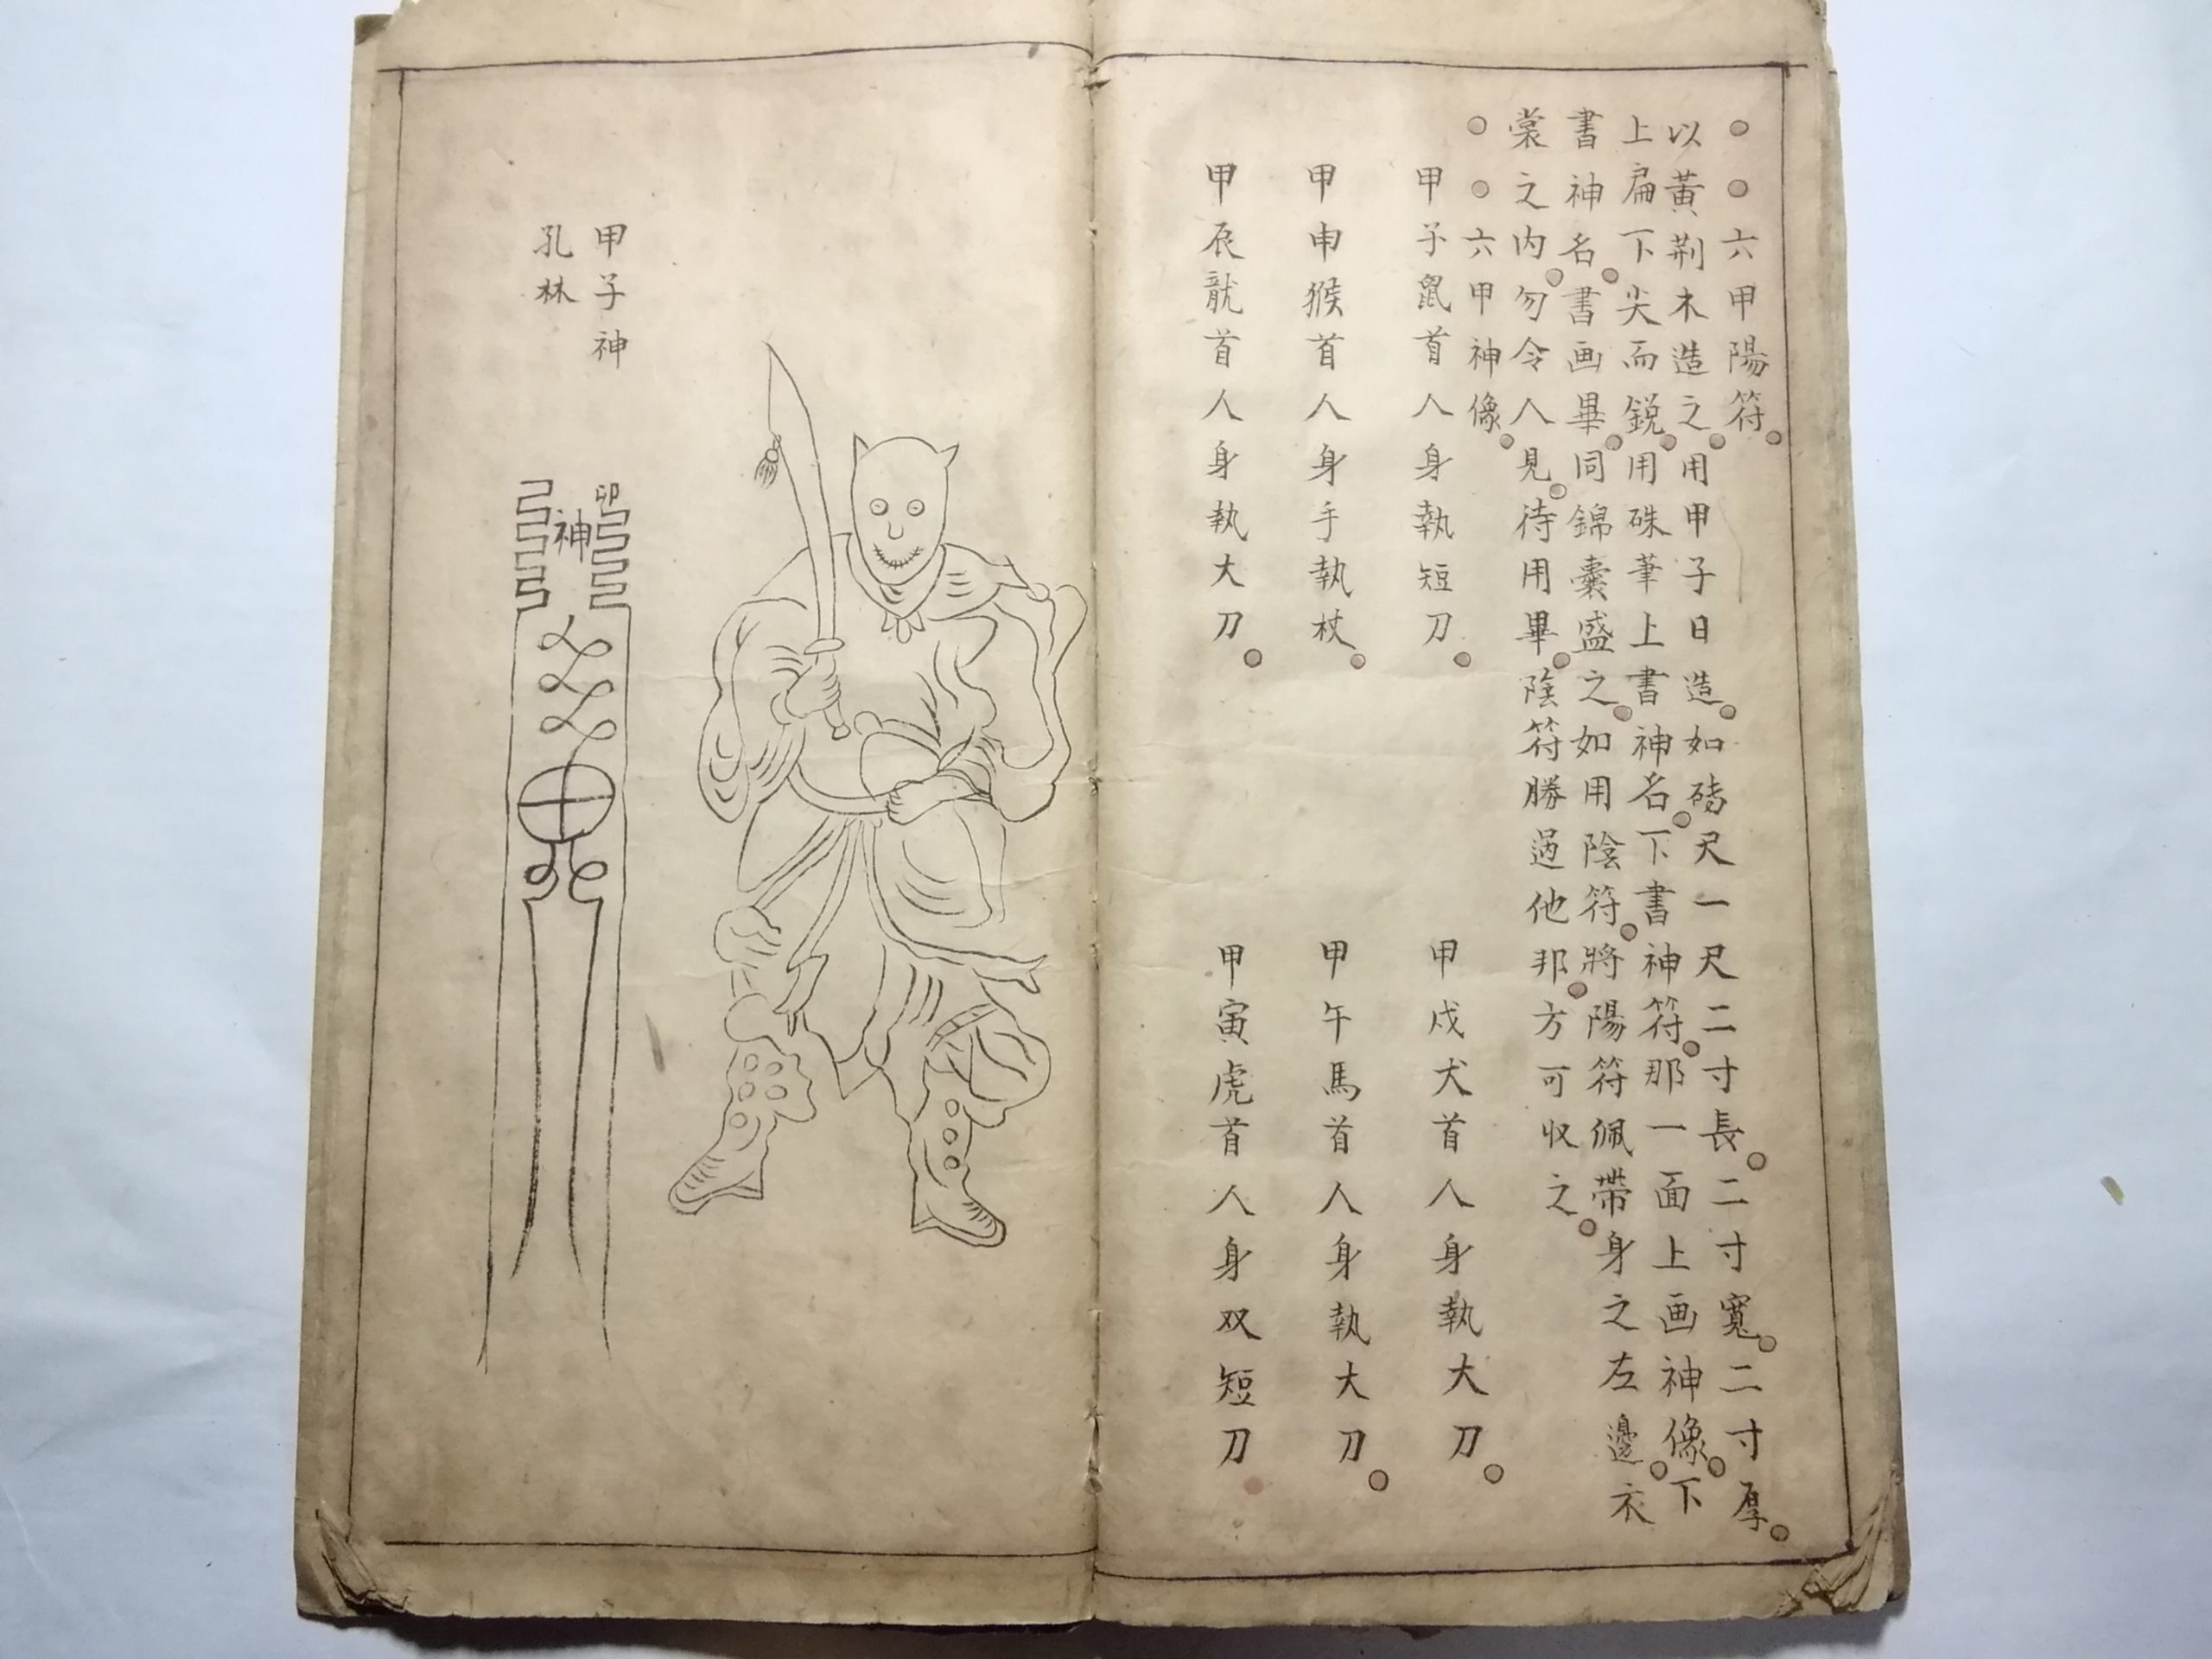 六甲陽符
以黃荊木造之用甲子日造如磚尺一尺二寸長二寸寬二寸厚
上扁下尖而銳用硃筆上書神名下書神符那一面上画神像下
書神名書画畢同錦囊盛之如用陰符將陽符佩帶身之左邊衣
裳之內勿令人見待用畢陰符勝過他邦方可収之
六甲神像
甲子鼠首人身執短刀
甲戍犬首人身執大刀
甲申猴首人身手執杖
甲午馬首人身執大刀
甲辰龍首人身執大刀
甲寅虎首人身双短刀
甲子神
孔林
卯
神